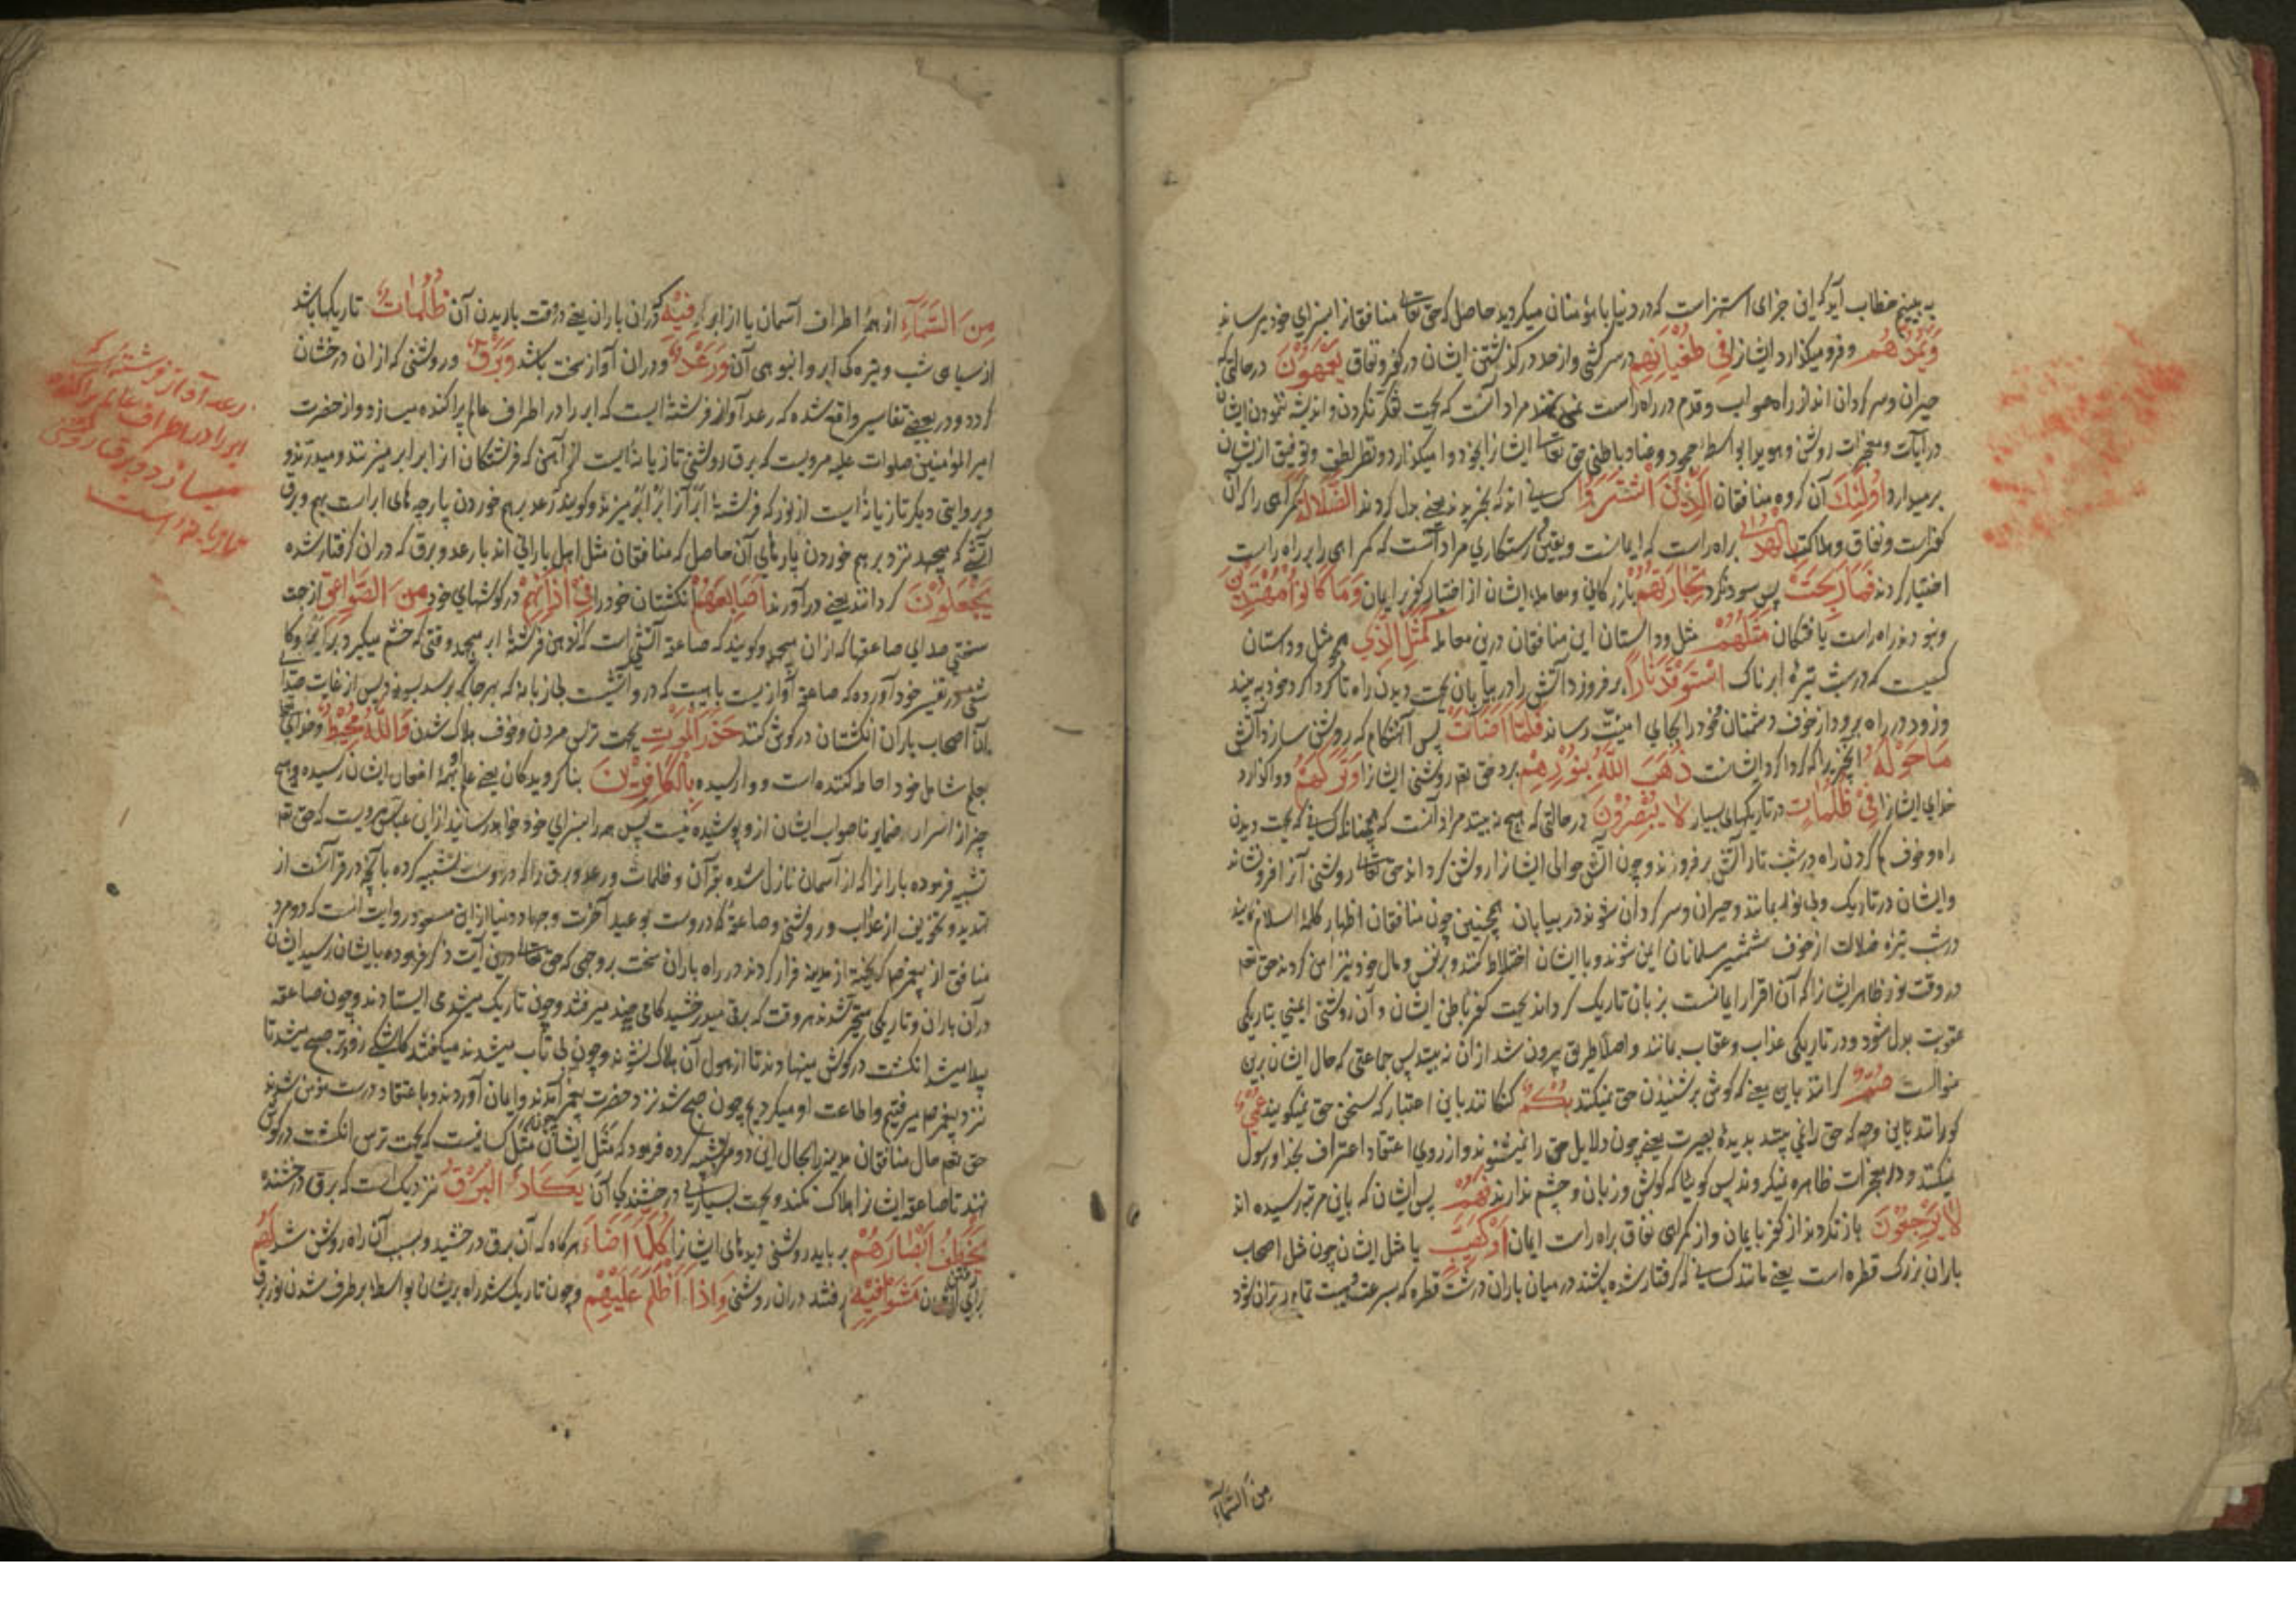 به بینیم خطاب آید که این جزای استهزاست که در دنیا با مؤمنان میکردید حاصل که حق تعالی منافقانرا بسزای خود میرساند
وَيَمُدُّهُمْ و فرو میگذارد ایشانرا فِي طُغْيَانِهِمْ در سرکشی و از حد در گذشتن ایشان در کفر و نفاق يَعْمَهُونَ در حالتی که
حیران و سر کردان اند از راه صواب و قدم در راه راست نمی نهند مراد آنست که بجهت فکر نکردن و اندیشه ننمودن ایشان
در آیات و معجزات روشن و هویدا بواسطهٔ جحود و عناد باطنی حق تعالی ایشانرا بخود وا میکذارد و نظر لطف و توفیق از ایشان
برمیدارد اُولٰئِكَ آن کروه منافقان الَّذِينَ اشْتَرَوُا کسانی اند که بخریدند یعنی بدل کردند الضَّلَالَةَ کمراهی را که آن
کفرست و نفاق و هلاکت بِالْهُدٰى براه راست که ایمانست و یقین و رستکاری مراد آنست که کمراهی را بر راه راست
اختیار کردند فَمَا رَبِحَتْ پس سود نکرد تِجَارَتُهُمْ بازرکانی و معامله ایشان از اختیار کفر بر ایمان وَمَا كَانُوا مُهْتَدِينَ
و نبودند راه راست یافتکان مَثَلُهُمْ مثل و داستان این منافقان درین معامله كَمَثَلِ الَّذِي همچو مثل و داستان
کسیست که در شب تیرهٔ ابرناک اسْتَوْقَدَ نَارًا بر فروزد آتش را در بیابان بجهت دیدن راه تا کرداکرد خود به بیند
و زود در راه برود از خوف دشمنان خود را بجای امنیت رساند فَلَمَّا اَضَاءَتْ پس آنهنکام که روشن سازد آتش
مَا حَوْلَهُ آنچیزیرا که کرداکرد ایشانست ذَهَبَ اللّٰهُ بِنُورِهِمْ برد حق تعالی روشنی ایشانرا وَتَرَكَهُمْ و واکذارد
خدای ایشانرا فِي ظُلُمَاتٍ در تاریکیهای بسیار لَا يُبْصِرُونَ در حالتی که هیچ نه بینند مراد آنست که همچنانکه کسانی که بجهت دیدن
راه و خوف کم کردن راه در شب تار آتش بر فروزند و چون آتش حوالی ایشانرا روشن کرداند حق تعالی روشنی آنرا فرو نشاند
و ایشان در تاریک و بی نور بمانند و حیران و سر کردان شوند در بیابان همچنین چون منافقان اظهار کلمهٔ اسلام نمایند
در شب تیره ضلالت از خوف شمشیر مسلمانان ایمن شوند و با ایشان اختلاط کنند و بر نفس و مال خود نیز امن کردند حق تعالی
در وقت نور ظاهر ایشانرا که آن اقرار ایمانست بزبان تاریک کرداند بجهت کفر باطن ایشان و آن روشنی ایمنی بتاریکی
عقوبت بدل شود و در تاریکی عذاب و عقاب بمانند و اصلا طریق بیرون شد از ان نه بینند پس جماعتی که حال ایشان برین
منوالست صُمٌّ کرانند باین معنی که کوش بر شنیدن حق نمیکنند بُكْمٌ کنکانند باین اعتبار که سخن حق نمیکویند عُمْيٌ
کورانند باین وجه که حق را نمی بینند بدیدهٔ بصیرت یعنی چون دلایل حق را نمیشنوند و از روی اعتقاد اعتراف بخدا و رسول
نمیکنند و در معجزات ظاهره نمیکروند پس کوییا که کوش و زبان و چشم ندارند فَهُمْ پس ایشان که باین مرتبه رسیده اند
لَا يَرْجِعُونَ باز نکردند از کفر بایمان و از کمراهی نفاق براه راست ایمان اَوْ كَصَيِّبٍ یا مثل ایشان چون مثل اصحاب
باران بزرک قطره است یعنی مانند کسانی که کرفتار شده باشند در میان باران درشت قطره که بسرعت
مِنَ السَّمَاءِ
مِنَ السَّمَاءِ از همه اطراف آسمان یا از ابر فِيهِ که در ان باران یعنی در وقت باریدن آن ظُلُمَاتٌ تاریکیها باشد
از سیاهی شب و تیره کی ابر و انبوهی آن وَرَعْدٌ و در ان آواز سخت باشد وَبَرْقٌ و روشنی که از ان درخشان
کردد و در بعضی تفاسیر واقع شده که رعد آواز فرشته‌ایست که ابر را در اطراف عالم پراکنده میسازد و از حضرت
امیر المؤمنین صلوات علیه مرویست که برق روشنی تازیانه‌ایست از آهن که فرشتکان از ابر ابر میزنند و میدرند و
و بروایتی دیکر تازیانه‌ایست از نور که فرشته ابر آنرا بر ابر میزند و کویند رعد بر هم خوردن پارچه های ابر است بهم و برق
آتشی که بجهد نزد بر هم خوردن پارهای آن حاصل که منافقان مثل اهل بارانی اند با رعد و برق که در ان کرفتار شده
يَجْعَلُونَ کردانند یعنی در آورند اَصَابِعَهُمْ انکشتان خود را فِي اٰذَانِهِمْ در کوشهای خود مِنَ الصَّوَاعِقِ از جهت
سختی صدای صاعقها که از ان بجهد و کویند که صاعقه آتشی است که از دهن فرشتهٔ ابر بجهد وقتی که خشم میکیرد بر ابر
در تفسیر خود آورده که صاعقه آوازیست باهیبت که در و آتشیست بی زبانه که بهر جا که برسد بسوزد پس از غایت صدا
آن اصحاب باران انکشتان در کوش کنند حَذَرَ الْمَوْتِ بجهت ترس مردن و خوف هلاک شدن وَاللّٰهُ مُحِيطٌ و خدای تعالی
بعلم شامل خود احاطه کننده است و وارسیده بِالْكَافِرِينَ بناکرویدکان یعنی علم او بهمهٔ افعال ایشان رسیده و هیچ
چیز از اسرار و ضمایر ناصواب ایشان ازو پوشیده نیست پس همه را بسزای خود خواهد رسانید از ابن عباس مرویست که حق تعالی
تشبیه فرموده بارانرا که از آسمان نازل شده بقرآن و ظلمات و رعد و برق را که دروست تشبیه کرده بآنچه در قرآنست از
تهدید و تخویف از عذاب و روشنی و صاعقه که دروست بوعید آخرت و جهاد دنیا از ابن مسعود روایت است که دو مرد
منافق از پیغمبر ص کریخته از مدینه فرار کردند در راه باران سخت بر وجهی که حق تعالی درین آیت ذکر فرموده بایشان رسید ایشان
در ان باران و تاریکی متحیر شدند هر وقت که برق میدرخشید کامی چند میرفتند و چون تاریک میشد می ایستادند و چون صاعقه
پیدا میشد انکشت در کوش مینهادند تا از هول آن هلاک نشوند و چون بی تاب میشدند میکفتند کاشکی زودتر صبح میشد تا
نزد پیغمبر ص میرفتیم و اطاعت او میکردیم چون صبح شد نزد حضرت پیغمبر آمدند و ایمان آوردند و با عتقاد درست مؤمن شدند
حق تعالی حال منافقان مدینه را بحال این دو مرد تشبیه کرده فرمود که مثل ایشان مثل کسانیست که بجهت ترس انکشت در کوش
نهند تا صاعقه ایشانرا هلاک نکند و بجهت بسیاری درخشندکی آن يَكَادُ الْبَرْقُ نزدیک است که برق درخشنده
يَخْطَفُ اَبْصَارَهُمْ بر باید روشنی دیدهای ایشانرا كُلَّمَا اَضَاءَ هر کاه که آن برق درخشید و بسبب آن راه روشن شد لَهُمْ
برای مَشَوْا فِيهِ رفتند در ان روشنی وَاِذَا اَظْلَمَ عَلَيْهِمْ و چون تاریک شد راه بریشان بواسطهٔ بر طرف شدن نور برق
رعد آواز فرشته‌ایست که
ابر را در اطراف عالم پراکنده
میسازد و برق روشنی
تازیانهٔ است